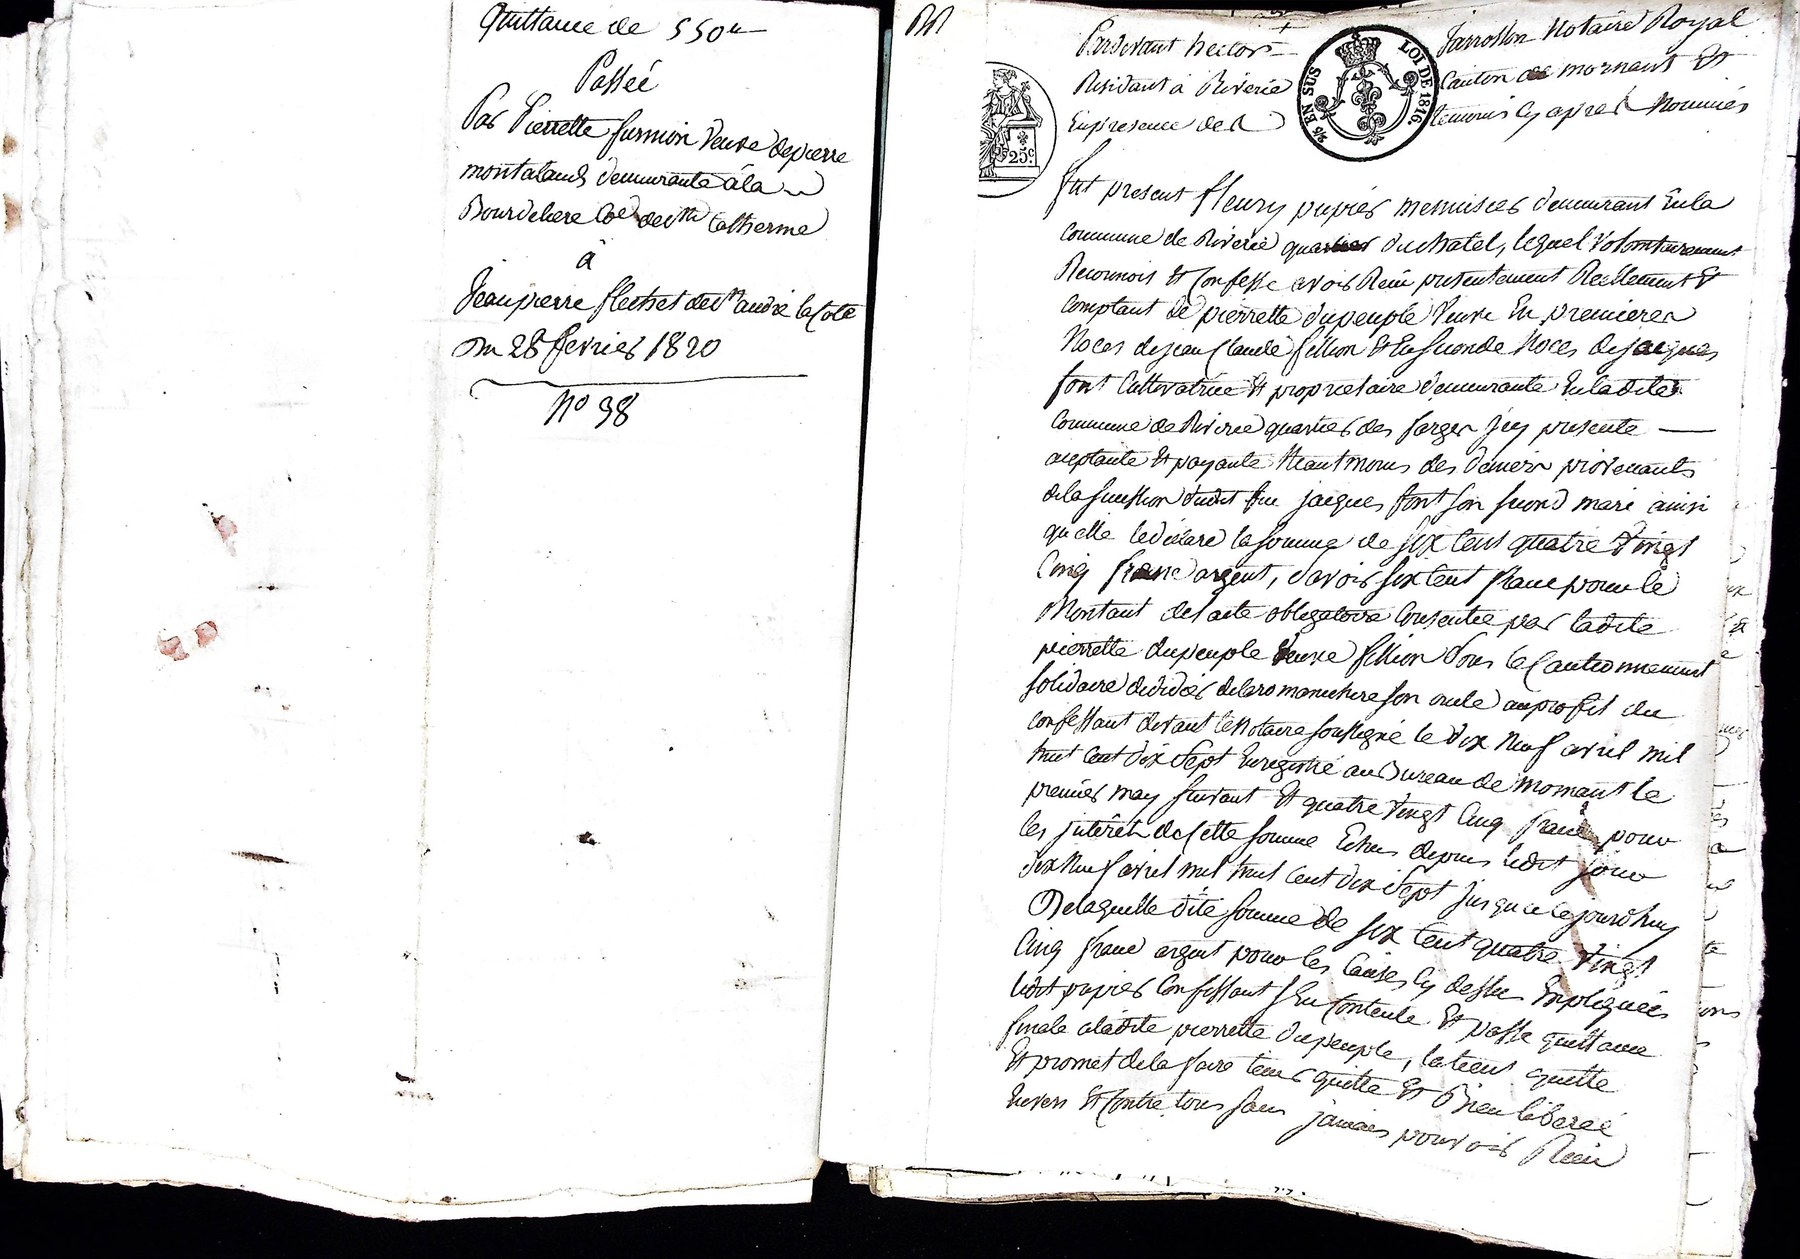 Quittance de 550 #
Passée
Par Pierrette furnion Veuve de pierre
montaland demeurante à la
Bourdeliere Coe. de Ste Catherine
à
Jean pierre flechet de St andré la Cote
Du 28 fevrier 1820
No 38
Pardevant hector
Jarrosson Notaire Royal
Residant à Riverie
Canton de mornant Et
En presence des
temoins cy apres Nommés
LOI DE 1816.
EN SUS
25c
fut present fleury papier menuisier demeurant En la
commune de Riverie quartier du chatel, lequel Volontairement
Reconnois Et Confesse avoir Reçu presentement Reellement Et
comptant de pierrette dupeuple Veuve En premieres
Noces de jean Claude fillion Et En seconde Noces de jacques
font Cultivatrice Et proprietaire demeurante En ladite
Commune de Riverie quartier des farges jcy presente
aceptante Et payante Neantmoins des deniers provenants
de la succession dudit feu jacques font son second mari ainsi
qu'elle le déclare la somme de six Cent quatre Vingt
Cinq franc argent, savoir six Cent franc pour le
Montant de l'acte obligatoire Consentie par ladite
pierrette dupeuple Veuve fillion sous le Cautionnement
solidaire de son oncle au profit du
confessant devant le Notaire soussigné le dix Neuf avril mil
huit Cent dix sept Enregistré au Bureau de Mornant le
premier may suivant Et quatre Vingt Cinq franc pour
les jnterêts de Cette somme Echus depuis ledit jour
dix Neuf avril mil huit Cent dix sept jusqu'a Cejourd'huy
De laquelle dite somme de six Cent quatre Vingt
Cinq franc argent pour les Causes Cy dessus Expliquées
ledit papier Confessant s'En Contente Et passe quittance
finale a ladite pierrette dupeuple, la tient quitte
Et promet de la faire tenir quitte Et Bien liberée
Envers Et Contre tous sans jamais pouvoir Rien